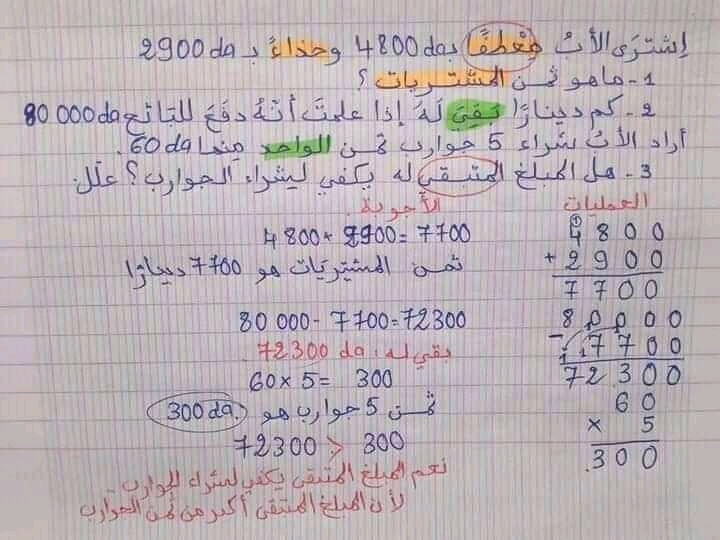 إشترى الأبُ مِعْطفًا بـ 4800da وحذاءً بـ 2900da
1- ما هو ثمن المشتريات ؟
2- كم دينارًا بَقِيَ لَهُ إذا علمتَ أنّهُ دفَعَ للبائع 80 000da
أراد الأبُ شراء 5 جوارب ثمن الواحد منها 60da.
3- هل المبلغ المتبقي له يكفي لشراء الجوارب؟ علّل
الأجوبة
العمليات
4800+2900=7700
ثمن المشتريات هو 7700 دينارًا
80 000-7700=72300
بقي له: 72300 da.
60×5= 300
ثمن 5 جوارب هو 300da.
72300 > 300
نعم المبلغ المتبقي يكفي لشراء الجوارب.
لأن المبلغ المتبقي أكبر من ثمن الجوارب
1
4800
+ 2900
7700
80000
- 7700
72300
60
× 5
300